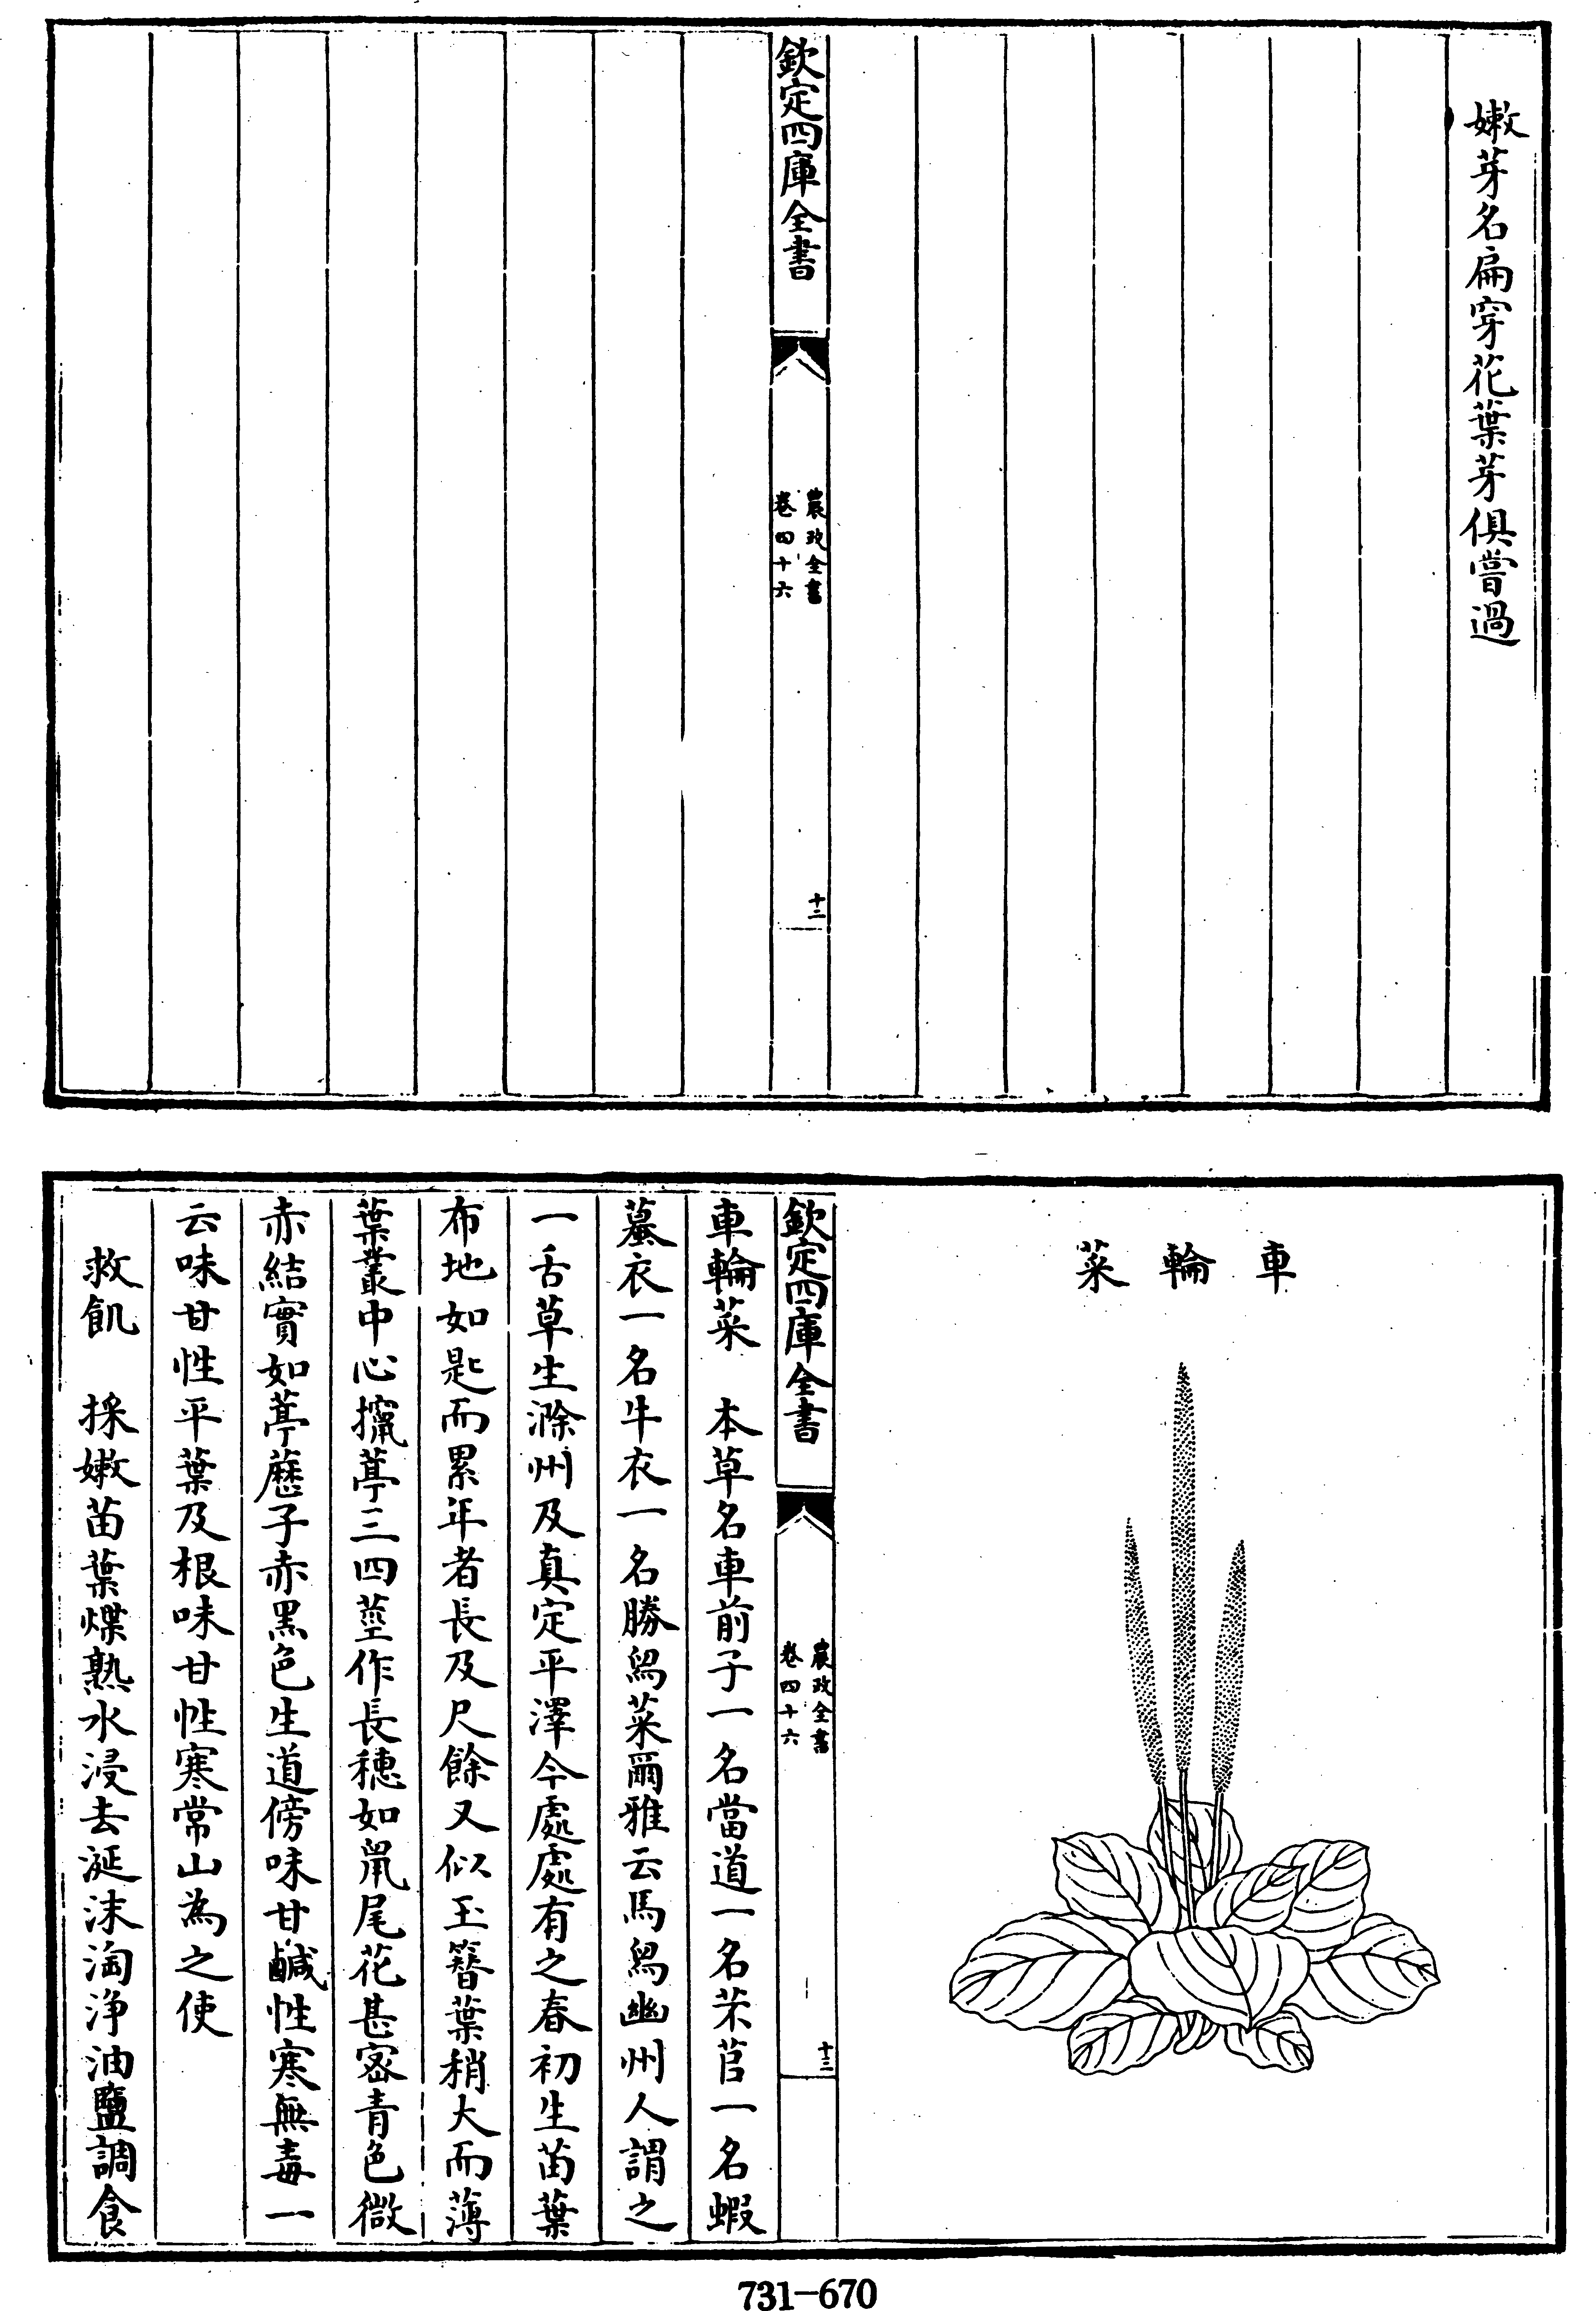 嫩芽名扁穿花葉芽俱嘗過
欽定四庫全書
農政全書
卷四十六
十二
車輪菜
欽定四庫全書
農政全書
卷四十六
十三
車輪菜　本草名車前子一名當道一名芣苢一名蝦
蟇衣一名牛衣一名勝舄菜爾雅云馬舄幽州人謂之
一舌草生滁州及真定平澤今處處有之春初生苗葉
布地如匙而累年者長及尺餘又似玉簪葉稍大而薄
葉叢中心攛葶三四莖作長穗如鼠尾花甚密青色微
赤結實如葶藶子赤黑色生道傍味甘鹹性寒無毒一
云味甘性平葉及根味甘性寒常山為之使
救飢　採嫩苗葉煠熟水浸去涎沫淘淨油鹽調食
731-670